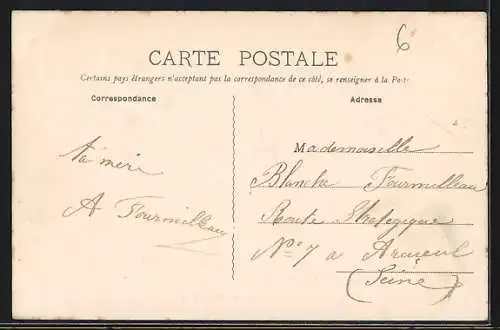 6
CARTE POSTALE
Certains pays étrangers n'acceptant pas la correspondance de ce côté, se renseigner à la Poste
Correspondance
Adresse
ta mère
A Fourmilleau
Mademoiselle
Blanche Fourmilleau
Route Stratégique
N° 7 a Arcueil
(Seine)